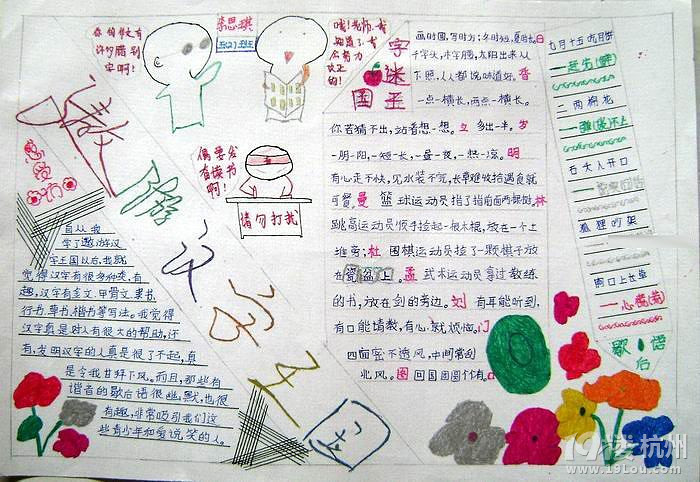 你的作文有
许多错别
字啊!
李思琪
五(2)班
哦!老师,我
知道了,我
会努力
改正
的!
遨
游
汉
字
王
国
偶要发
奋读书
啊!
请勿打扰
自从我
学了遨游汉
字王国以后,我就
觉得汉字有很多种类,有
趣,汉字有金文、甲骨文、隶书、
行书、草书、楷书等写法。我觉得
汉字真是对人有很大的帮助,还
有,发明汉字的人真是很了不起,真
是令我甘拜下风。而且,那些有
谐音的歇后语很幽默,也很
有趣,非常吸引我们这
些青少年和爱说笑的人。
字谜王国
画时圆,写时方;冬时短,夏时长。日
千字头,木字腰,太阳出来从
下照,人人都说味道好。香
一点一横长,两点一横长。
你若猜不出,站着想一想。立 多出一半。岁
一阴一阳,一短一长,一昼一夜,一热一凉。明
有心走不快,见水装不完,长草难收拾遇食就
可餐。曼 篮球运动员指了指前面两棵树。林
跳高运动员顺手捡起一根木棍,放在一个土
堆旁;杜 围棋运动员捡了一颗棋子放
在瓷盆上。孟 武术运动员拿过教练
的书,放在剑的旁边。刘 有耳能听到,
有口能请教,有心就烦恼。门
四面密不透风,中间常刮
北风。图 回国团圆个个有。口
七月十五
二两棉花
石大人开口
狐狸吵架
胸口上长草
一心慌(荒)
歇后语
19楼 杭州
www.19Lou.com